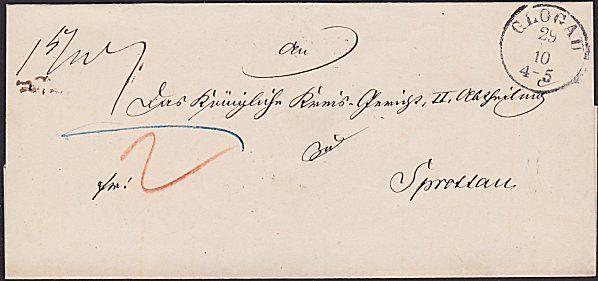 An
GLOGAU
29
10
4-5
Das Königliche Kreis-Gericht, II. Abtheilung
zu
fr: 2
Sprottau